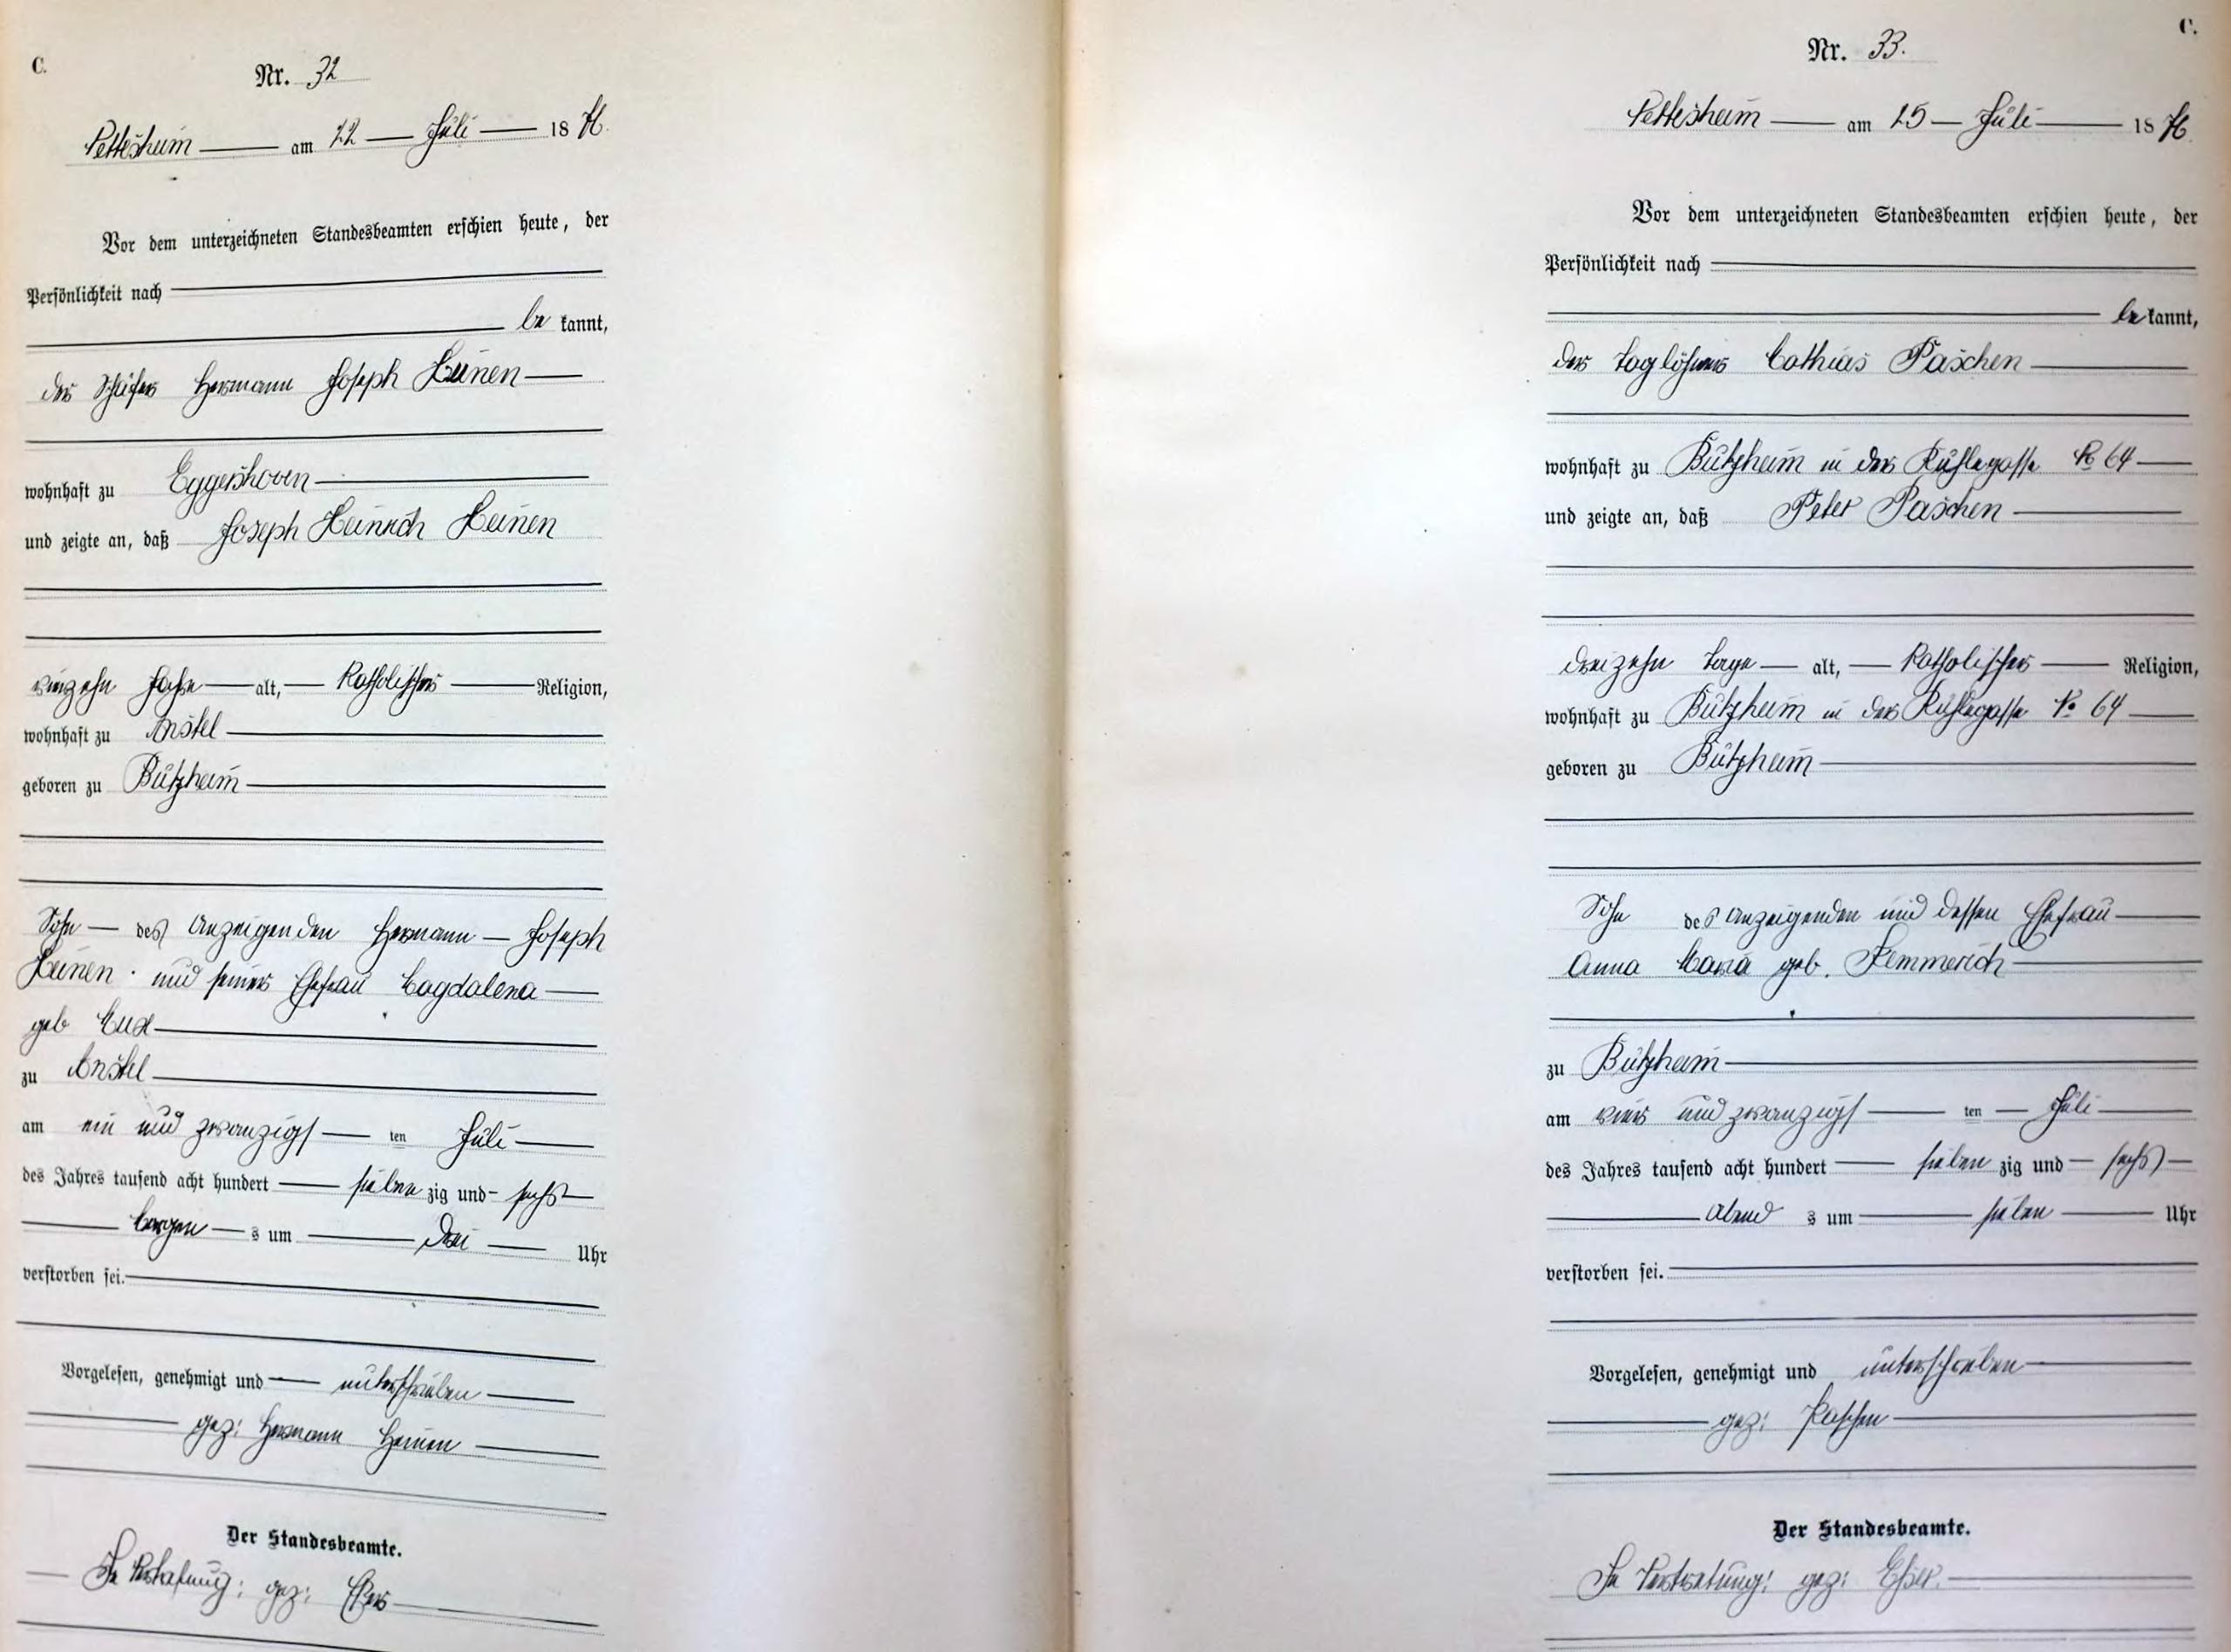 C.
Nr. 32
Nettesheim am 22 Juli 1876.
Vor dem unterzeichneten Standesbeamten erschien heute, der
Persönlichkeit nach
bekannt,
der Schäfer Hermann Joseph Heinen
wohnhaft zu Eggershoven
und zeigte an, daß Joseph Heinrich Heinen
Jahre alt, Katholischer Religion,
wohnhaft zu Anstel
geboren zu Bützheim
Sohn des Anzeigenden Hermann Joseph
Heinen und seiner Ehefrau Magdalena
geb
zu Anstel
am ein und zwanzigsten Juli
des Jahres tausend acht hundert siebenzig und sechs
Morgens um drei Uhr
verstorben sei.
Vorgelesen, genehmigt und unterschrieben
gez: Hermann Heinen
Der Standesbeamte.
In Vertretung: gez: Esser
C.
Nr. 33.
Nettesheim am 25 Juli 1876.
Vor dem unterzeichneten Standesbeamten erschien heute, der
Persönlichkeit nach
bekannt,
der Taglöhner Mathias Paschen
wohnhaft zu Bützheim in der No 64
und zeigte an, daß Peter Paschen
dreizehn Tage alt, Katholischer Religion,
wohnhaft zu Bützheim in der No 64
geboren zu Bützheim
Sohn des Anzeigenden und dessen Ehefrau
Anna Maria geb. Kemmerich
zu Bützheim
am vier und zwanzigsten Juli
des Jahres tausend acht hundert siebenzig und sechs
Abends um sieben Uhr
verstorben sei.
Vorgelesen, genehmigt und unterschrieben
gez: Paschen
Der Standesbeamte.
In Vertretung: gez: Esser.